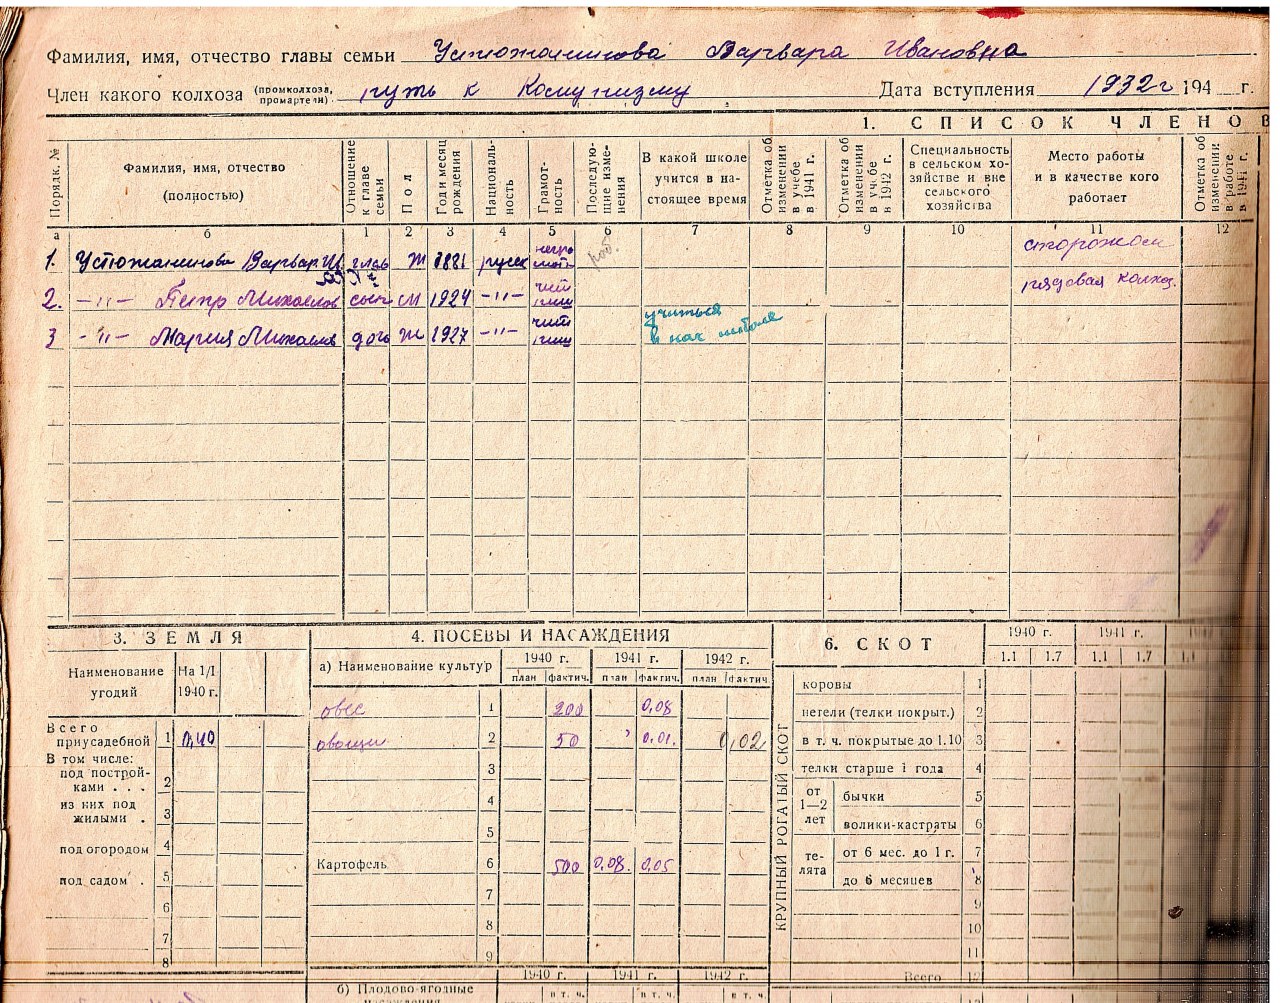 Фамилия, имя, отчество главы семьи Устюжанинова Варвара Ивановна
Член какого колхоза (промколхоза, промартели) путь к Комунизму Дата вступления 1932г 194 г.
1. СПИСОК ЧЛЕНОВ
Порядк. № Фамилия, имя, отчество (полностью) Отношение к главе семьи Пол Год и месяц рождения Националь-ность Грамот-ность Последую-щие изме-нения В какой школе учится в на-стоящее время Отметка об изменении в учебе в 1941 г. Отметка об изменении в учебе в 1942 г. Специальность в сельском хо-зяйстве и вне сельского хозяйства Место работы и в качестве кого работает Отметка об изменении в работе в 1941 г.
а б 1 2 3 4 5 6 7 8 9 10 11 12
1. Устюжанинова Варвар И глав Ж 1881 русск негра мотн сторожом
2. -"- Петр Михаелов сын М 1924 -"- чит пиш рядовая колхоз.
3 -"- Мария Михаелов дочь Ж 1927 -"- чит пиш учиться в нач школе
3. ЗЕМЛЯ
Наименование угодий На 1/I 1940 г.
Всего приусадебной 1 0,40
В том числе:
под построй-ками . . . 2
из них под жилыми . 3
под огородом 4
под садом . 5
6
7
8
4. ПОСЕВЫ И НАСАЖДЕНИЯ
а) Наименование культур 1940 г. 1941 г. 1942 г.
план фактич. план фактич. план фактич.
овес 1 200 0,08
овощи 2 50 0,01. 0,02
3
4
5
Картофель 6 500 0,08. 0,05
7
8
9
1940 г. 1941 г. 1942 г.
б) Плодово-ягодные насаждения в т. ч. в т. ч. в т. ч.
6. СКОТ 1940 г. 1941 г.
1.1 1.7 1.1 1.7 1.1
КРУПНЫЙ РОГАТЫЙ СКОТ
коровы 1
нетели (телки покрыт.) 2
в т. ч. покрытые до 1.10 3
телки старше 1 года 4
от 1—2 лет бычки 5
волики-кастраты 6
те-лята от 6 мес. до 1 г. 7
до 6 месяцев 8
9
10
11
Всего 12